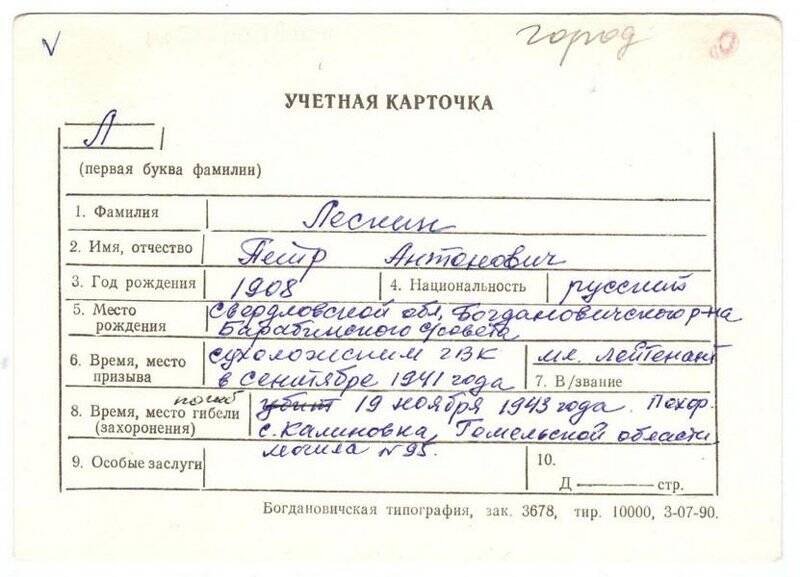 город
УЧЕТНАЯ КАРТОЧКА
Л
(первая буква фамилии)
1. Фамилия Лескин
2. Имя, отчество Петр Антонович
3. Год рождения 1908 4. Национальность русский
5. Место рождения Свердловской обл, Богдановичского р-на
Барабинского с/совета
6. Время, место призыва сухоложским ГВК
в сентябре 1941 года
мл. лейтенант
7. В/звание
погиб
8. Время, место гибели (захоронения) убит 19 ноября 1943 года. Похор.
с. Калиновка, Гомельской области
могила №95.
9. Особые заслуги
10.
Д — стр.
Богдановичская типография, зак. 3678, тир. 10000, 3-07-90.